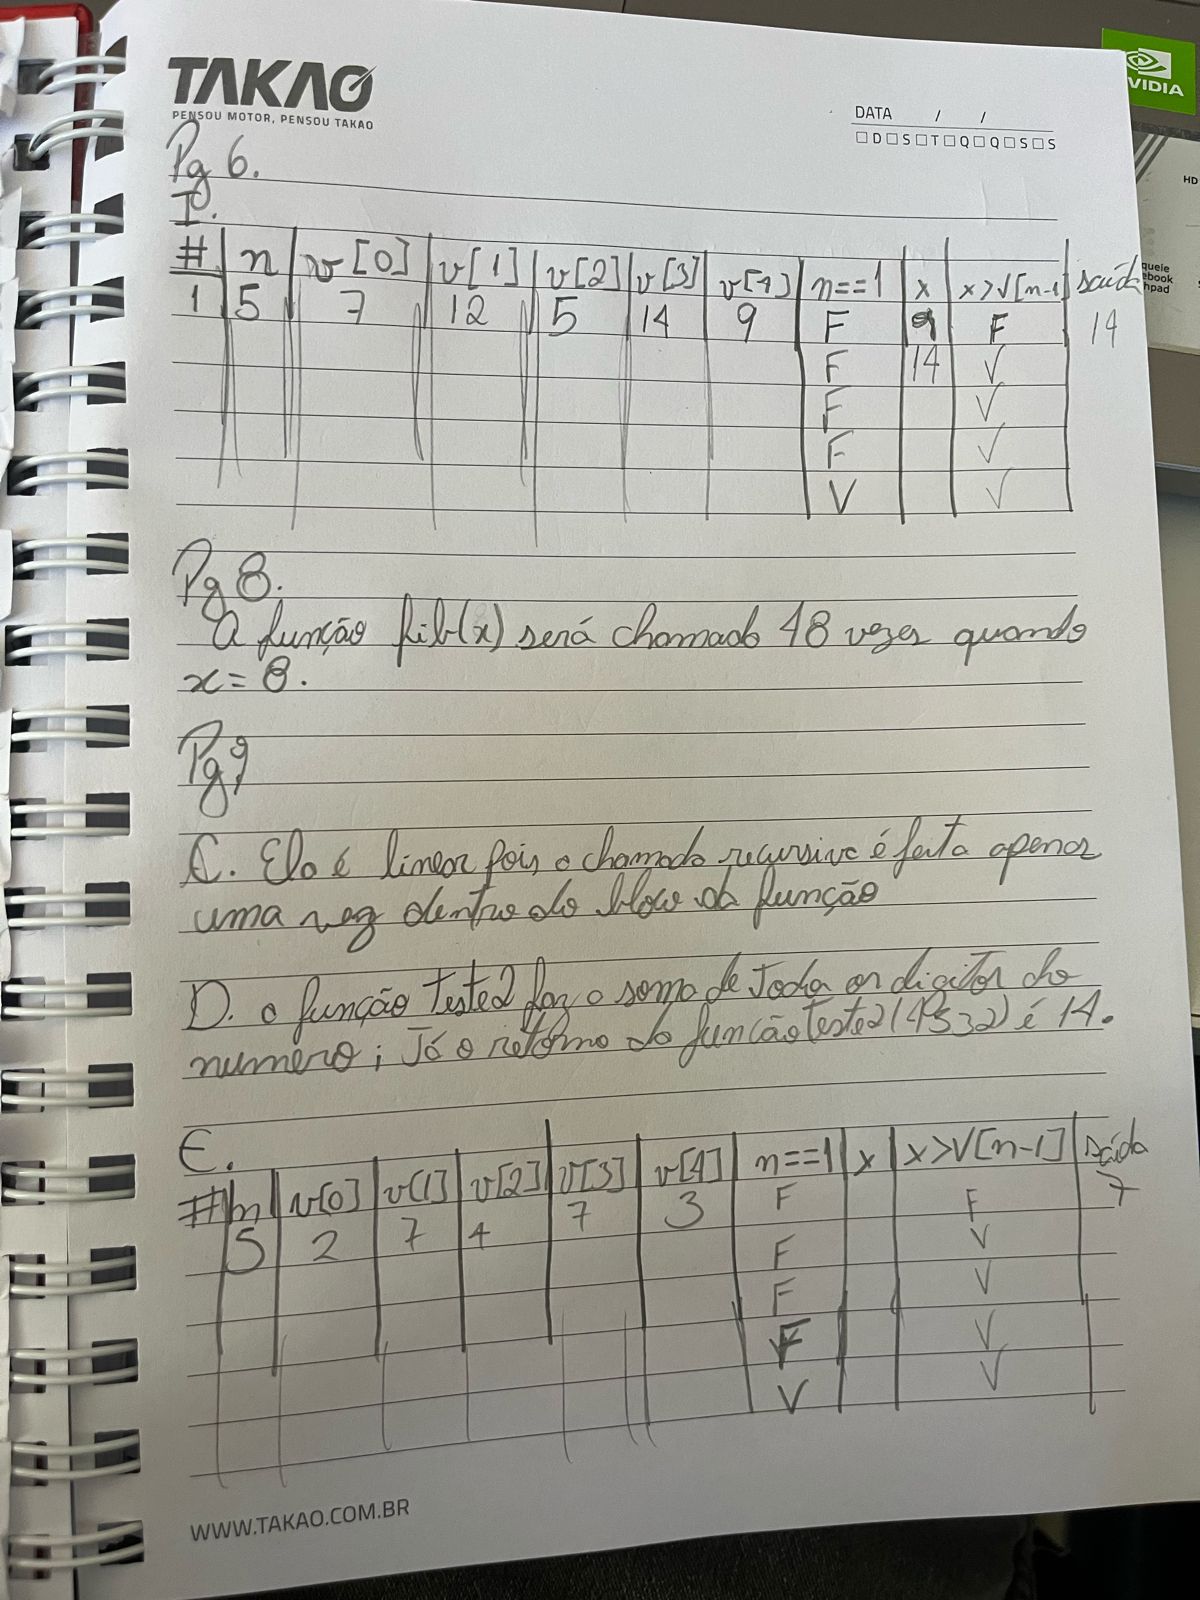 TAKAO
PENSOU MOTOR, PENSOU TAKAO
DATA / /
D S T Q Q S S
NVIDIA
HD
Pg 6.
I.
# n v[0] v[1] v[2] v[3] v[4] n==1 x x>V[n-1] saída
1 5 7 12 5 14 9 F 9 F 14
F 14 V
F V
F V
V V
Pg 8.
A função fib(x) será chamada 48 vezes quando
x=8.
Pg 9
C. Ela é linear pois a chamada recursiva é feita apenas
uma vez dentro do bloco da função
D. a função Teste2 faz a soma de Todos os digitos do
numero; Já o retorno da função Teste2(4532) é 14.
E.
# n v[0] v[1] v[2] v[3] v[4] n==1 x x>V[n-1] saída
5 2 7 4 7 3 F F 7
F V
F V
F V
V V
WWW.TAKAO.COM.BR